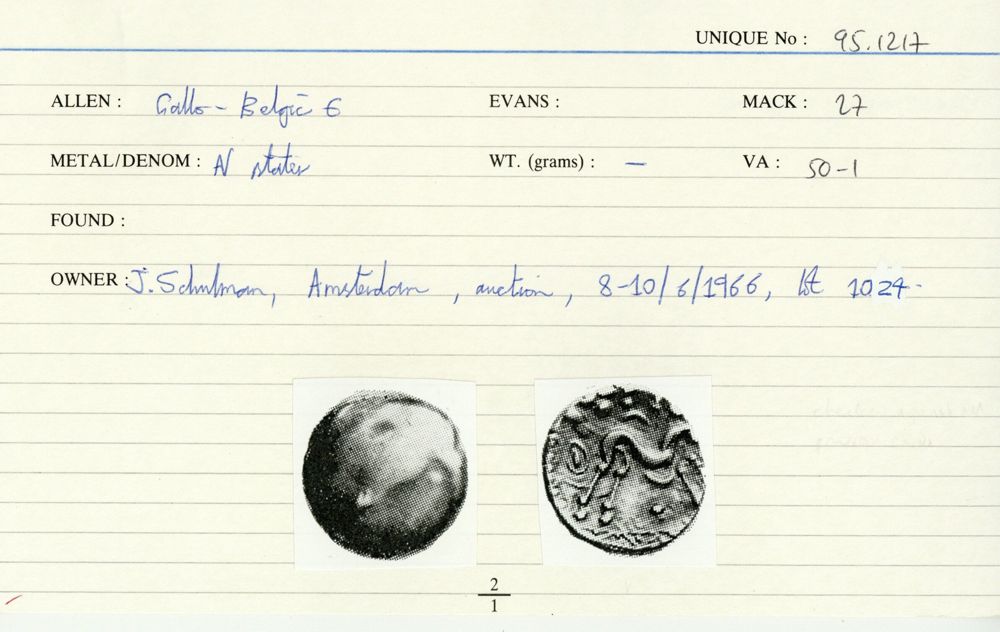 UNIQUE No : 95.1217
ALLEN : Gallo-Belgic E EVANS : MACK : 27
METAL/DENOM : AV stater WT. (grams) : — VA : 50-1
FOUND :
OWNER : J. Schulman, Amsterdam, auction, 8-10/6/1966, lot 1024.
2
1